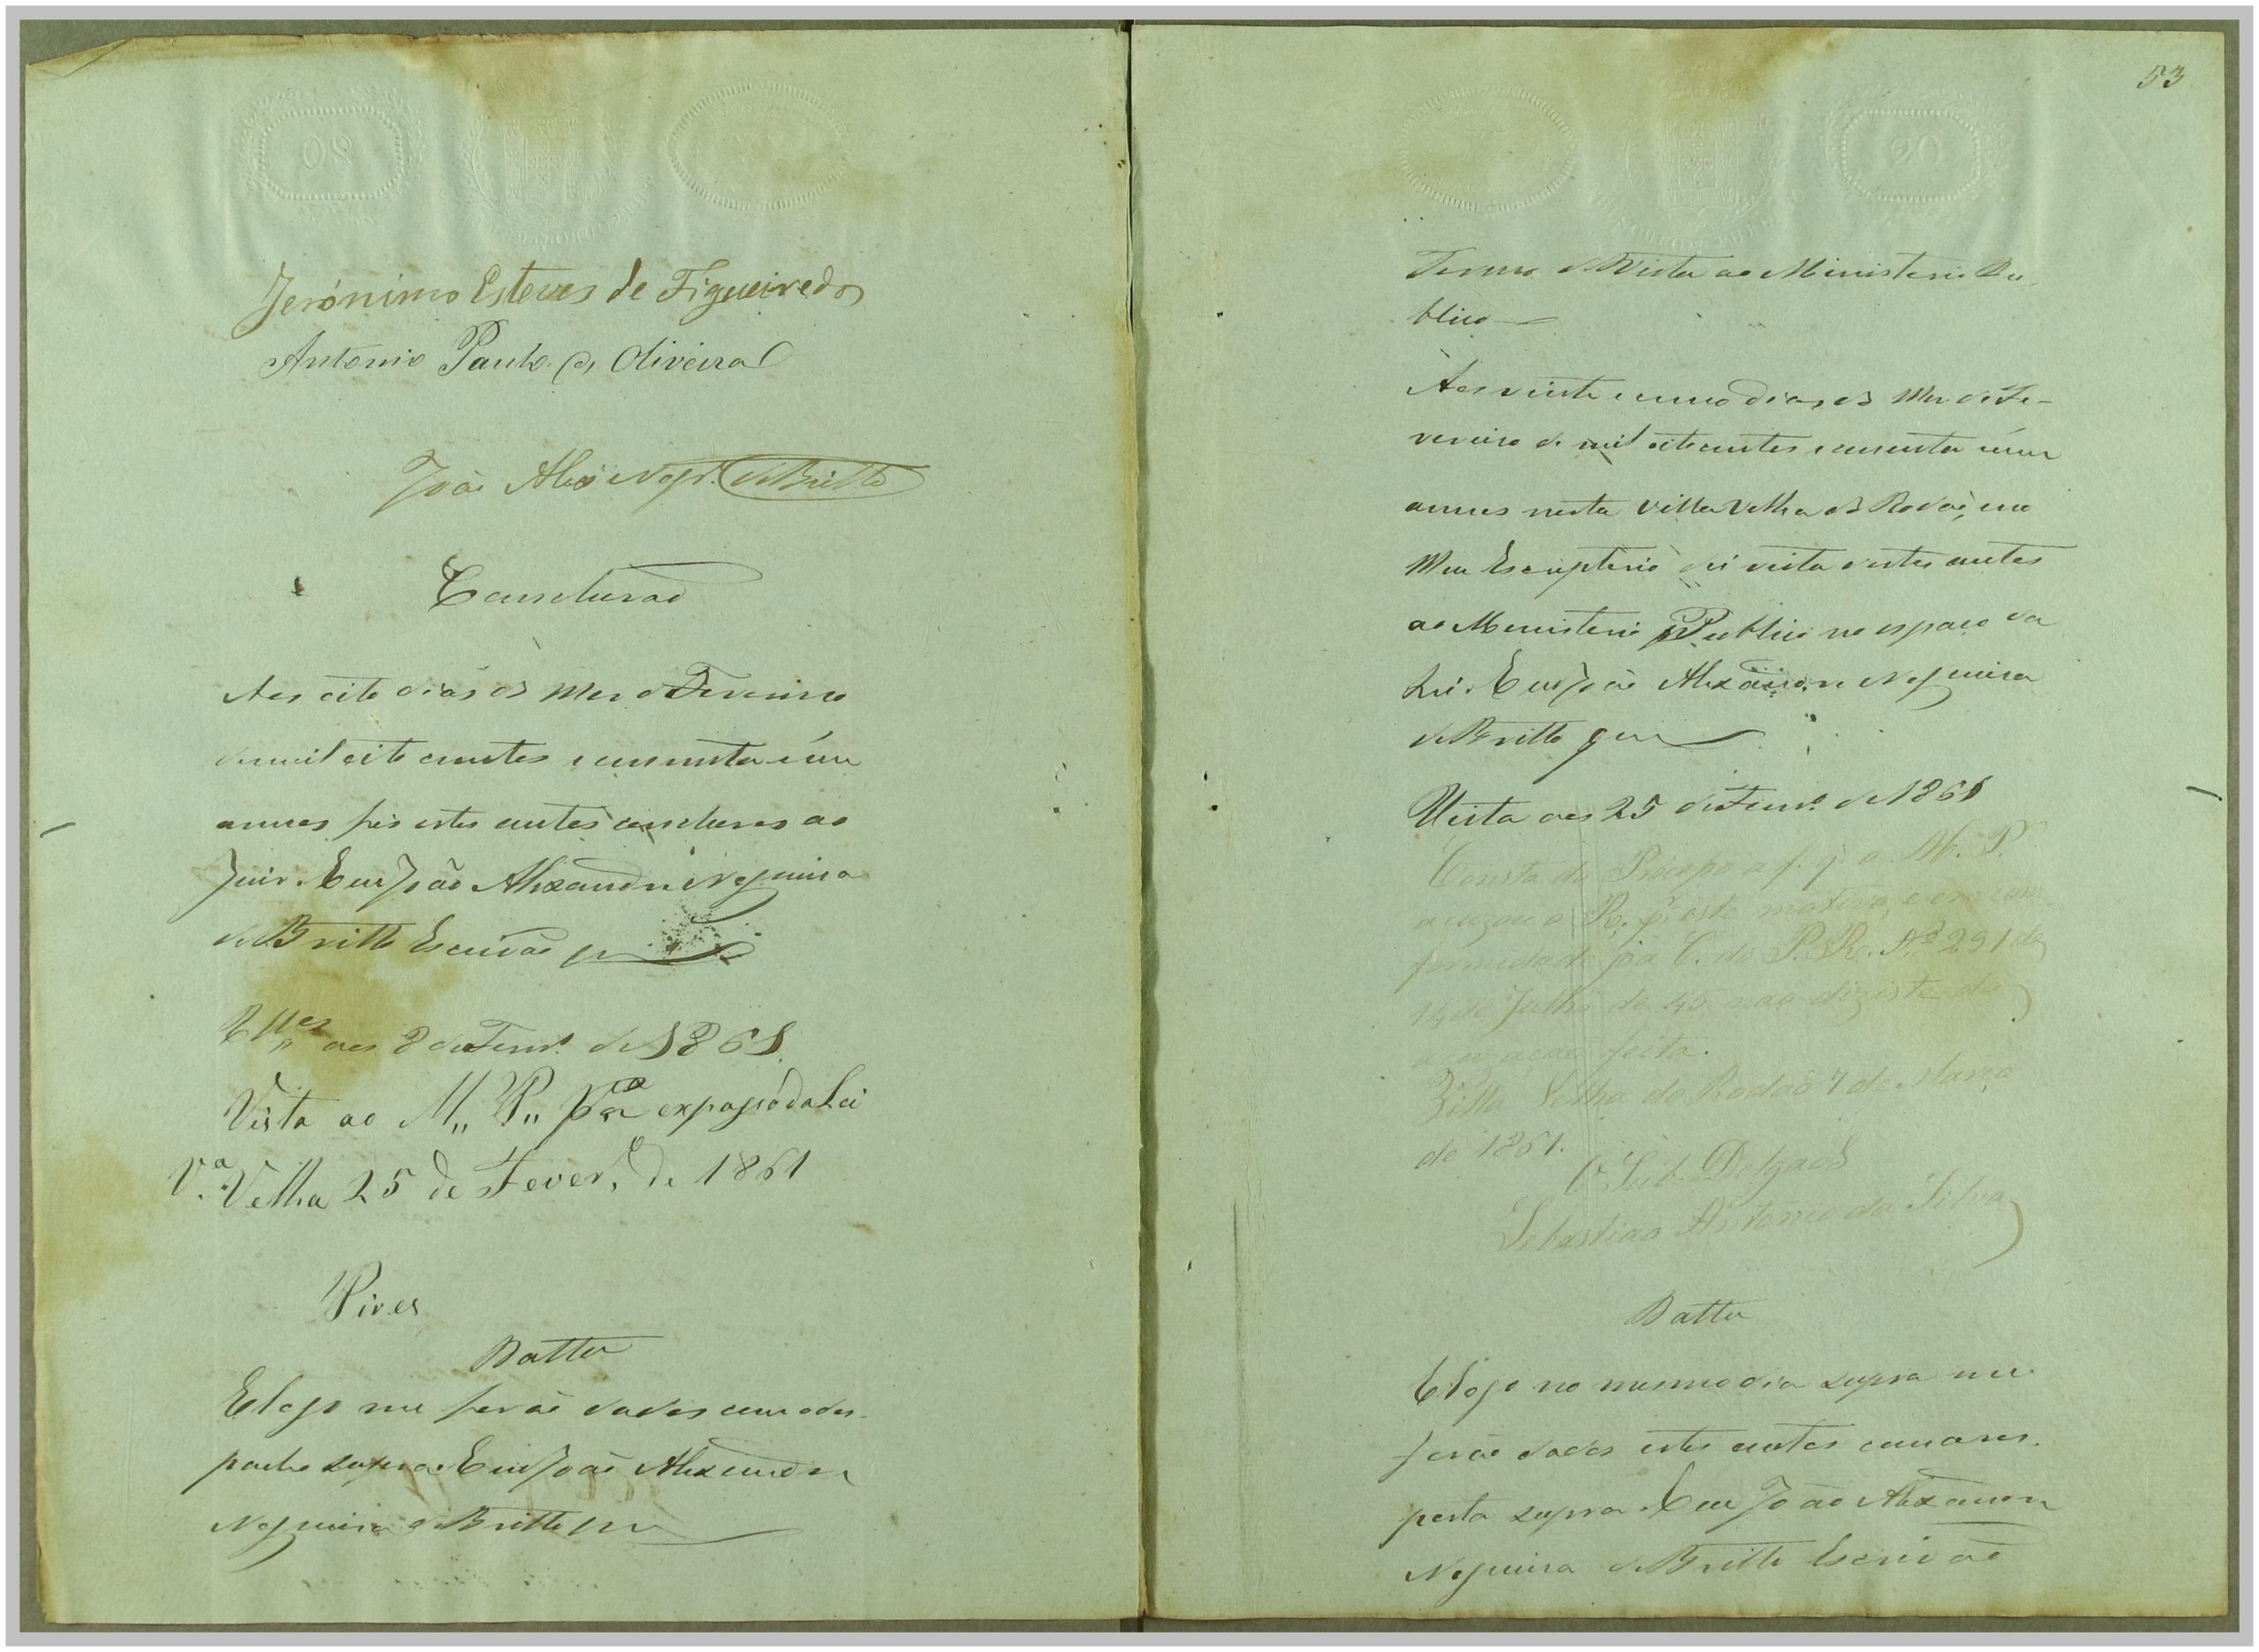 Jerónimo Esteves de Figueiredo
Antonio Paulo de Oliveira
João Alex.e Nogr.a de Britto
Conclusaõ
Aos oito dias do Mes de Fevereiro
de mil oito centos e sessenta e um
annos fis estes autos conclusos ao
Juis. Eu João Alexandre Nogueira
de Britto Escrivaõ que
Cllos aos 8 de Fever.o de 1861
Vista ao M,, P,, pa o espaço da Lei
V.a Velha 25 de Fever.o de 1861
Pires
Datta
E logo me foraõ dados com o des-
pacho supra. Eu João Alexandre
Nogueira de Britto que
53
20
Termo de Vista ao Ministerio Pu-
blico
Aos vinte e cinco dias do Mes de Fe-
vereiro de mil oito centos e sessenta e um
annos nesta Villa Velha de Rodaõ, em
Meu Escriptorio dei vista destes autos
ao Menisterio Publico no espaço da
Lei. Eu João Alexandre Nogueira
de Britto que
Vista aos 25 de Fever.o de 1861
Consta do Processo a f. q. o M. P.
acuzou o R. pr. este motivo, e em con
formidade com C. da P. R. N.o 291 de
14 de Julho de 45, naõ dizistе da
acuzaçaõ feita.
Villa Velha do Rodaõ 7 de Março
de 1861.
O Sub Delgado
Sebastiaõ Antonio da Silva
Datta
E logo no mesmo dia supra me
foraõ dados estes autos com a res-
posta supra. Eu João Alexandre
Nogueira de Britto Escrivaõ